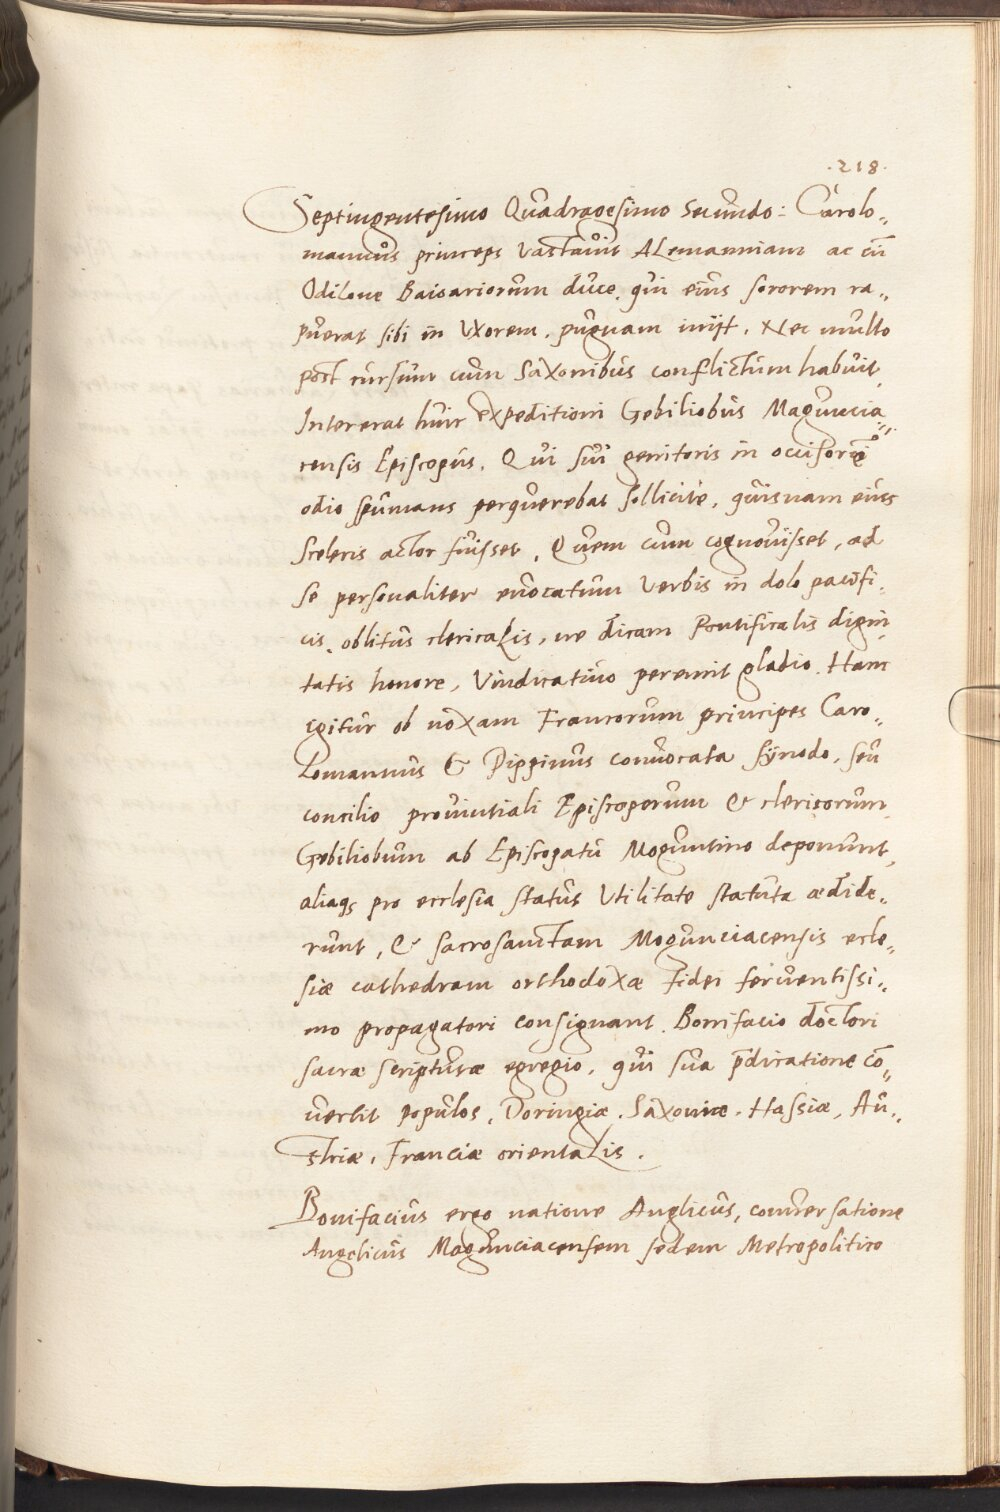 .218.
Septingentesimo Quadragesimo Secundo: Carolo„
mannus princeps vastavit ALemanniam ac cū
Odilone Baioariorum duce, qui eius sororem ra„
puerat sibi in Uxorem, pugnam inijt. Nec multo
post rursum cum Saxonibus conflictum habuit,
Intererat huic expeditioni Gebiliobus Maguncia„
censis Episcopus. Qui sui genitoris in occisorē
odio spumans perquerebat sollicite, quisnam eius
sceleris actor fuisset, Quem cum cognovisset, ad
se personaliter euocatum verbis in dolo pacifi,
cis, oblitus clericaLis, ne dicam Pontificalis digni,
tatis honore, Vindicativo peremit gladio. Hanc
igitur ob noxam Francorum principes Caro„
Lomannus & Pippinus convocata synodo, seu
concilio provintiali Episcoporum & clericorum,
Gebiliobum ab Episcopatu Moguntino deponunt,
aliaqꝫ pro ecclesia status Utilitate statuta ædide„
runt, & sacrosanctam Mogunciacensis ecle„
siæ cathedram orthodoxæ fidei ferventissi„
mo propagatori consignant. Bonifacio doctori
sacræ scripturæ egregio, qui sua p̄dicatione cō„
vertit populos, Doringiæ, Saxoniæ, Hassiæ, Au„
striæ, Franciæ orientaLis.
Bonifacius ergo natione Anglicus, conversatione
Angelicus Magunciacensem sedem Metropolitico